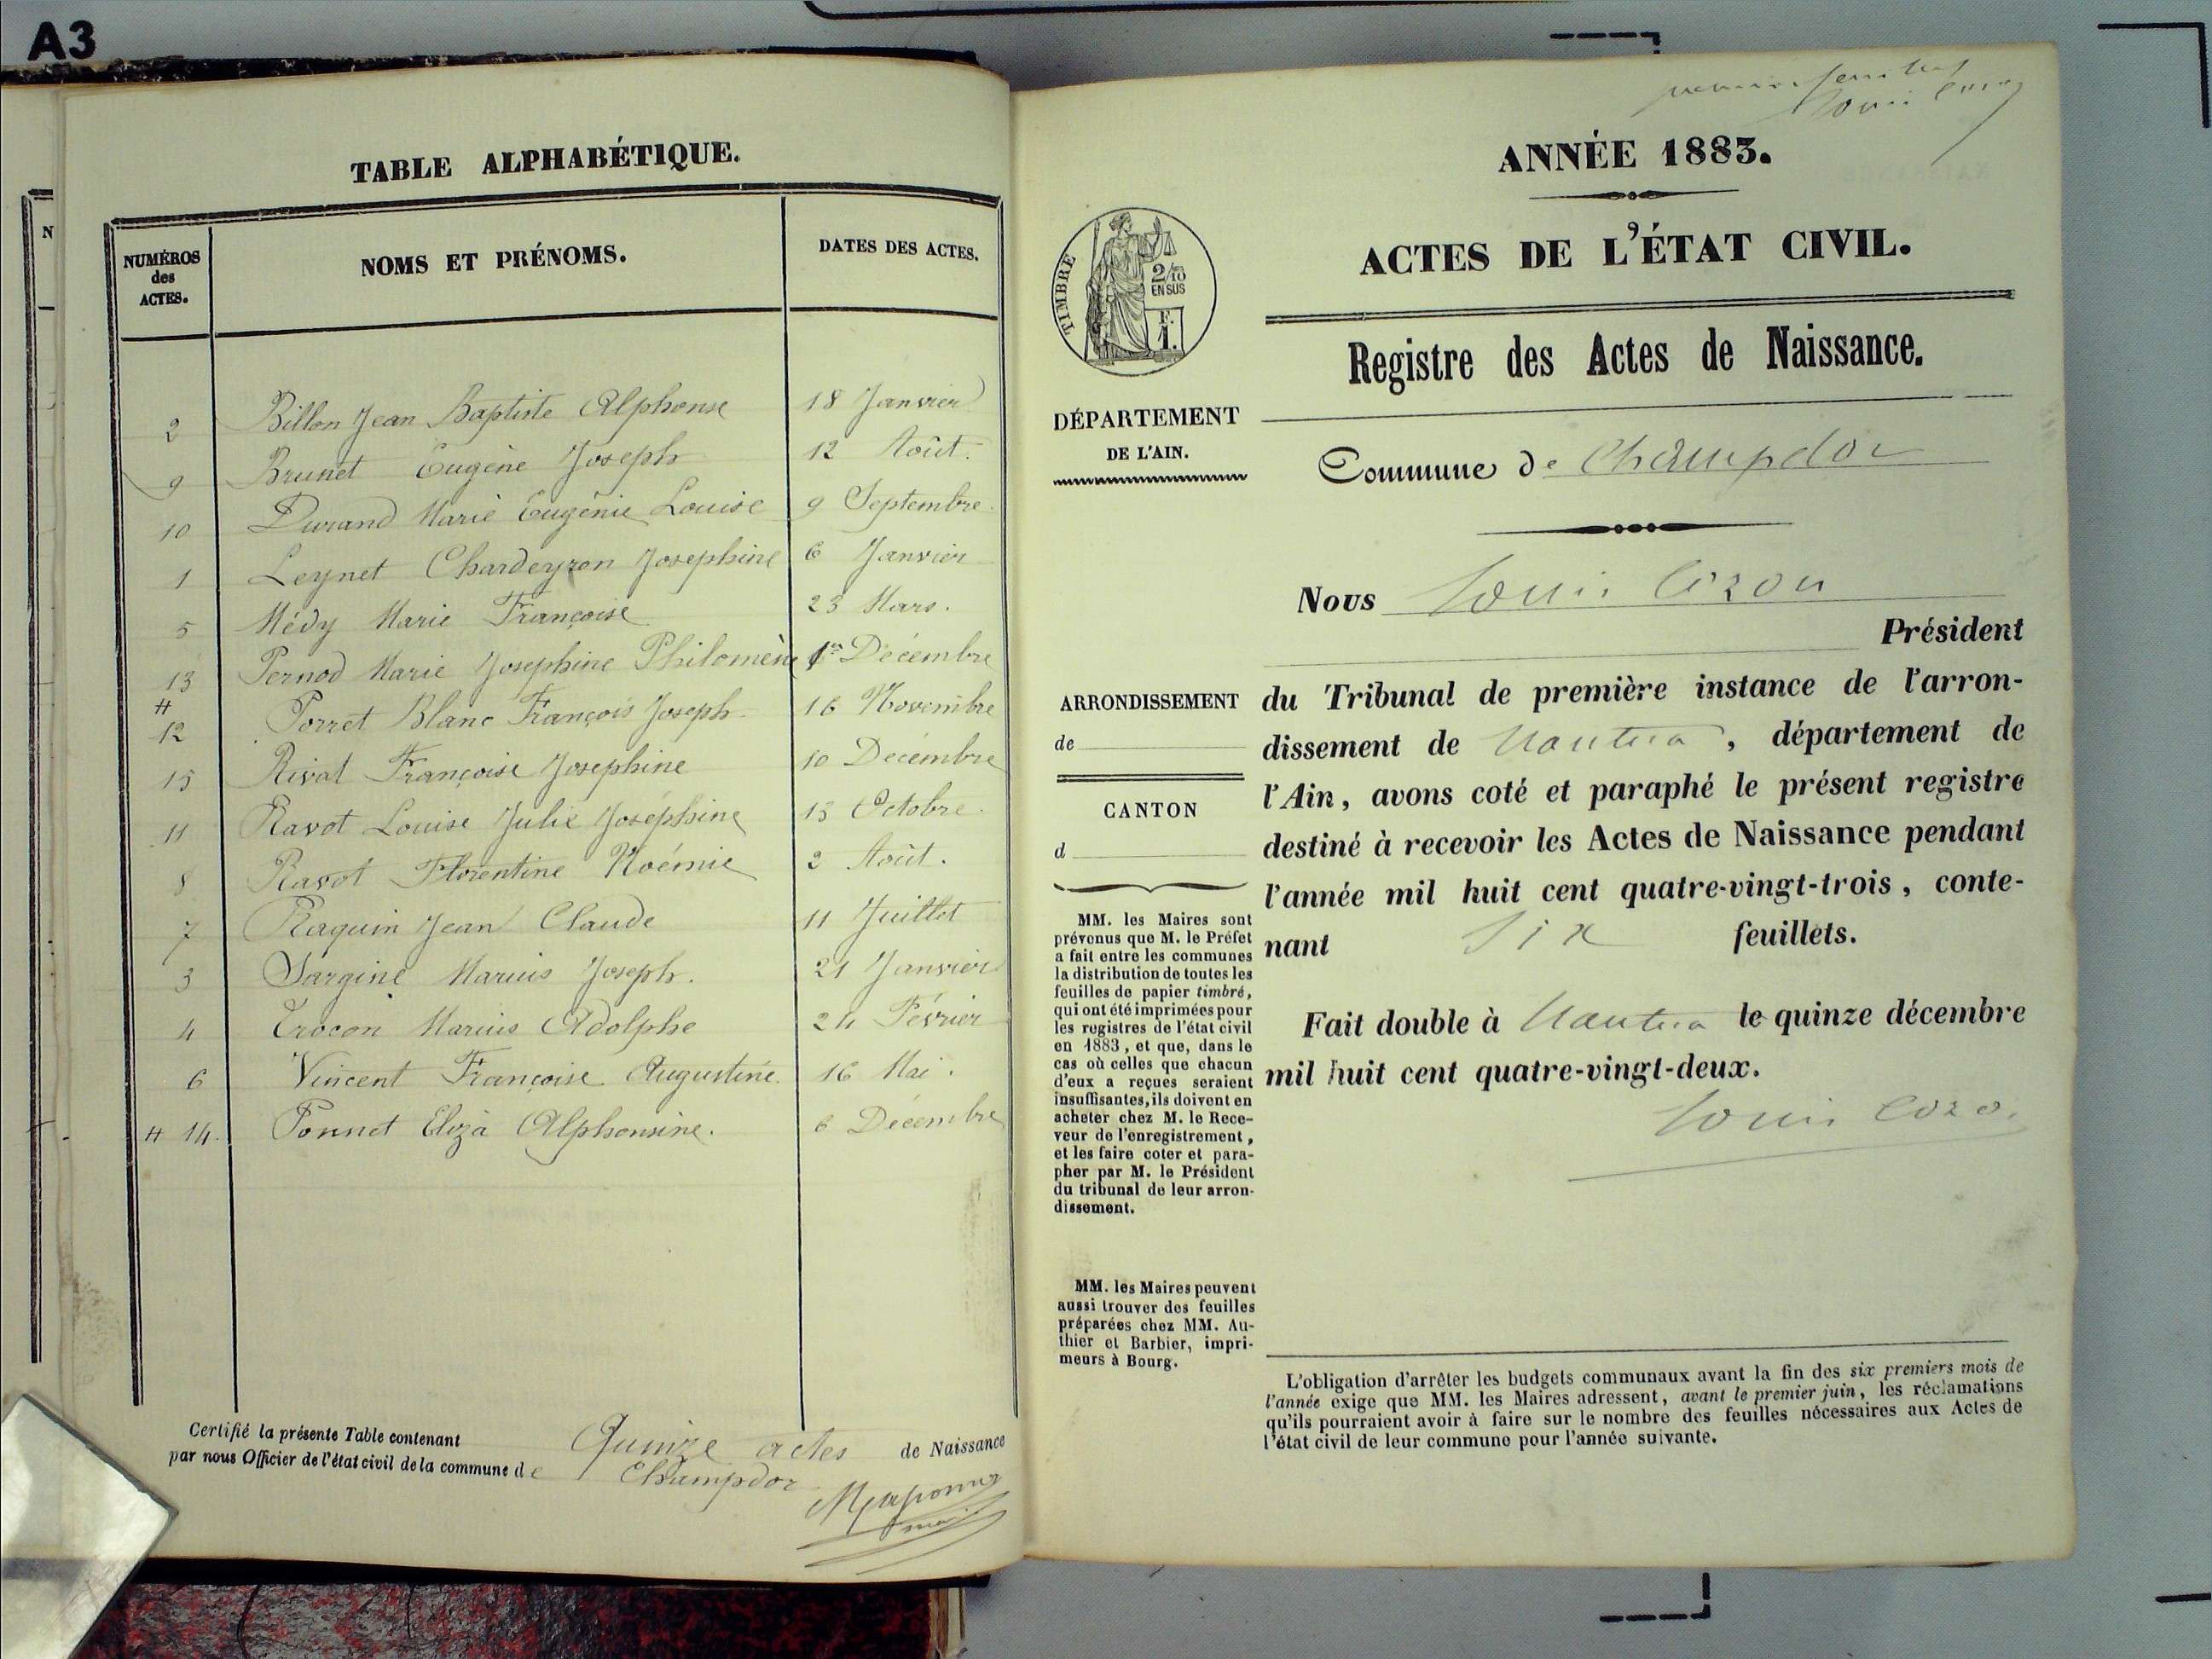 A3
TABLE ALPHABÉTIQUE.
NUMÉROS
des
ACTES.
NOMS ET PRÉNOMS.
DATES DES ACTES.
2 Billon Jean Baptiste Alphonse 18 Janvier
9 Brunet Eugène Joseph 12 Août.
10 Durand Marie Eugénie Louise 9 Septembre.
1 Leynet Chardeyron Josephine 6 Janvier
5 Médy Marie Françoise 23 Mars.
13 Pernod Marie Josephine Philomène 1er Décembre
# 12 Porret Blanc François Joseph 16 Novembre
15 Rivat Françoise Josephine 10 Décembre
11 Ravot Louise Julie Joséphine 13 Octobre.
8 Ravot Florentine Noémie 2 Août.
7 Raquin Jean Claude 11 Juillet
3 Sargine Marius Joseph. 21 Janvier
4 Trocon Marius Adolphe 24 Février
6 Vincent Françoise Augustine. 16 Mai.
# 14. Ponnet Eliza Alphonsine. 6 Décembre
Certifié la présente Table contenant Quinze actes de Naissance
par nous Officier de l'état civil de la commune de Champdor
ANNÉE 1883.
ACTES DE L'ÉTAT CIVIL.
TIMBRE
2/10
EN SUS
F.
1.
Registre des Actes de Naissance.
DÉPARTEMENT
DE L'AIN.
Commune de Champdor
Nous Louis Cozon
Président
ARRONDISSEMENT
de
CANTON
d
du Tribunal de première instance de l'arron-
dissement de Nantua, département de
l'Ain, avons coté et paraphé le présent registre
destiné à recevoir les Actes de Naissance pendant
l'année mil huit cent quatre-vingt-trois, conte-
nant Six feuillets.
Fait double à Nantua le quinze décembre
mil huit cent quatre-vingt-deux.
Louis Cozo.
MM. les Maires sont
prévenus que M. le Préfet
a fait entre les communes
la distribution de toutes les
feuilles de papier timbré,
qui ont été imprimées pour
les registres de l'état civil
en 1883, et que, dans le
cas où celles que chacun
d'eux a reçues seraient
insuffisantes, ils doivent en
acheter chez M. le Rece-
veur de l'enregistrement,
et les faire coter et para-
pher par M. le Président
du tribunal de leur arron-
dissement.
MM. les Maires peuvent
aussi trouver des feuilles
préparées chez MM. Au-
thier et Barbier, impri-
meurs à Bourg.
L'obligation d'arrêter les budgets communaux avant la fin des six premiers mois de
l'année exige que MM. les Maires adressent, avant le premier juin, les réclamations
qu'ils pourraient avoir à faire sur le nombre des feuilles nécessaires aux Actes de
l'état civil de leur commune pour l'année suivante.